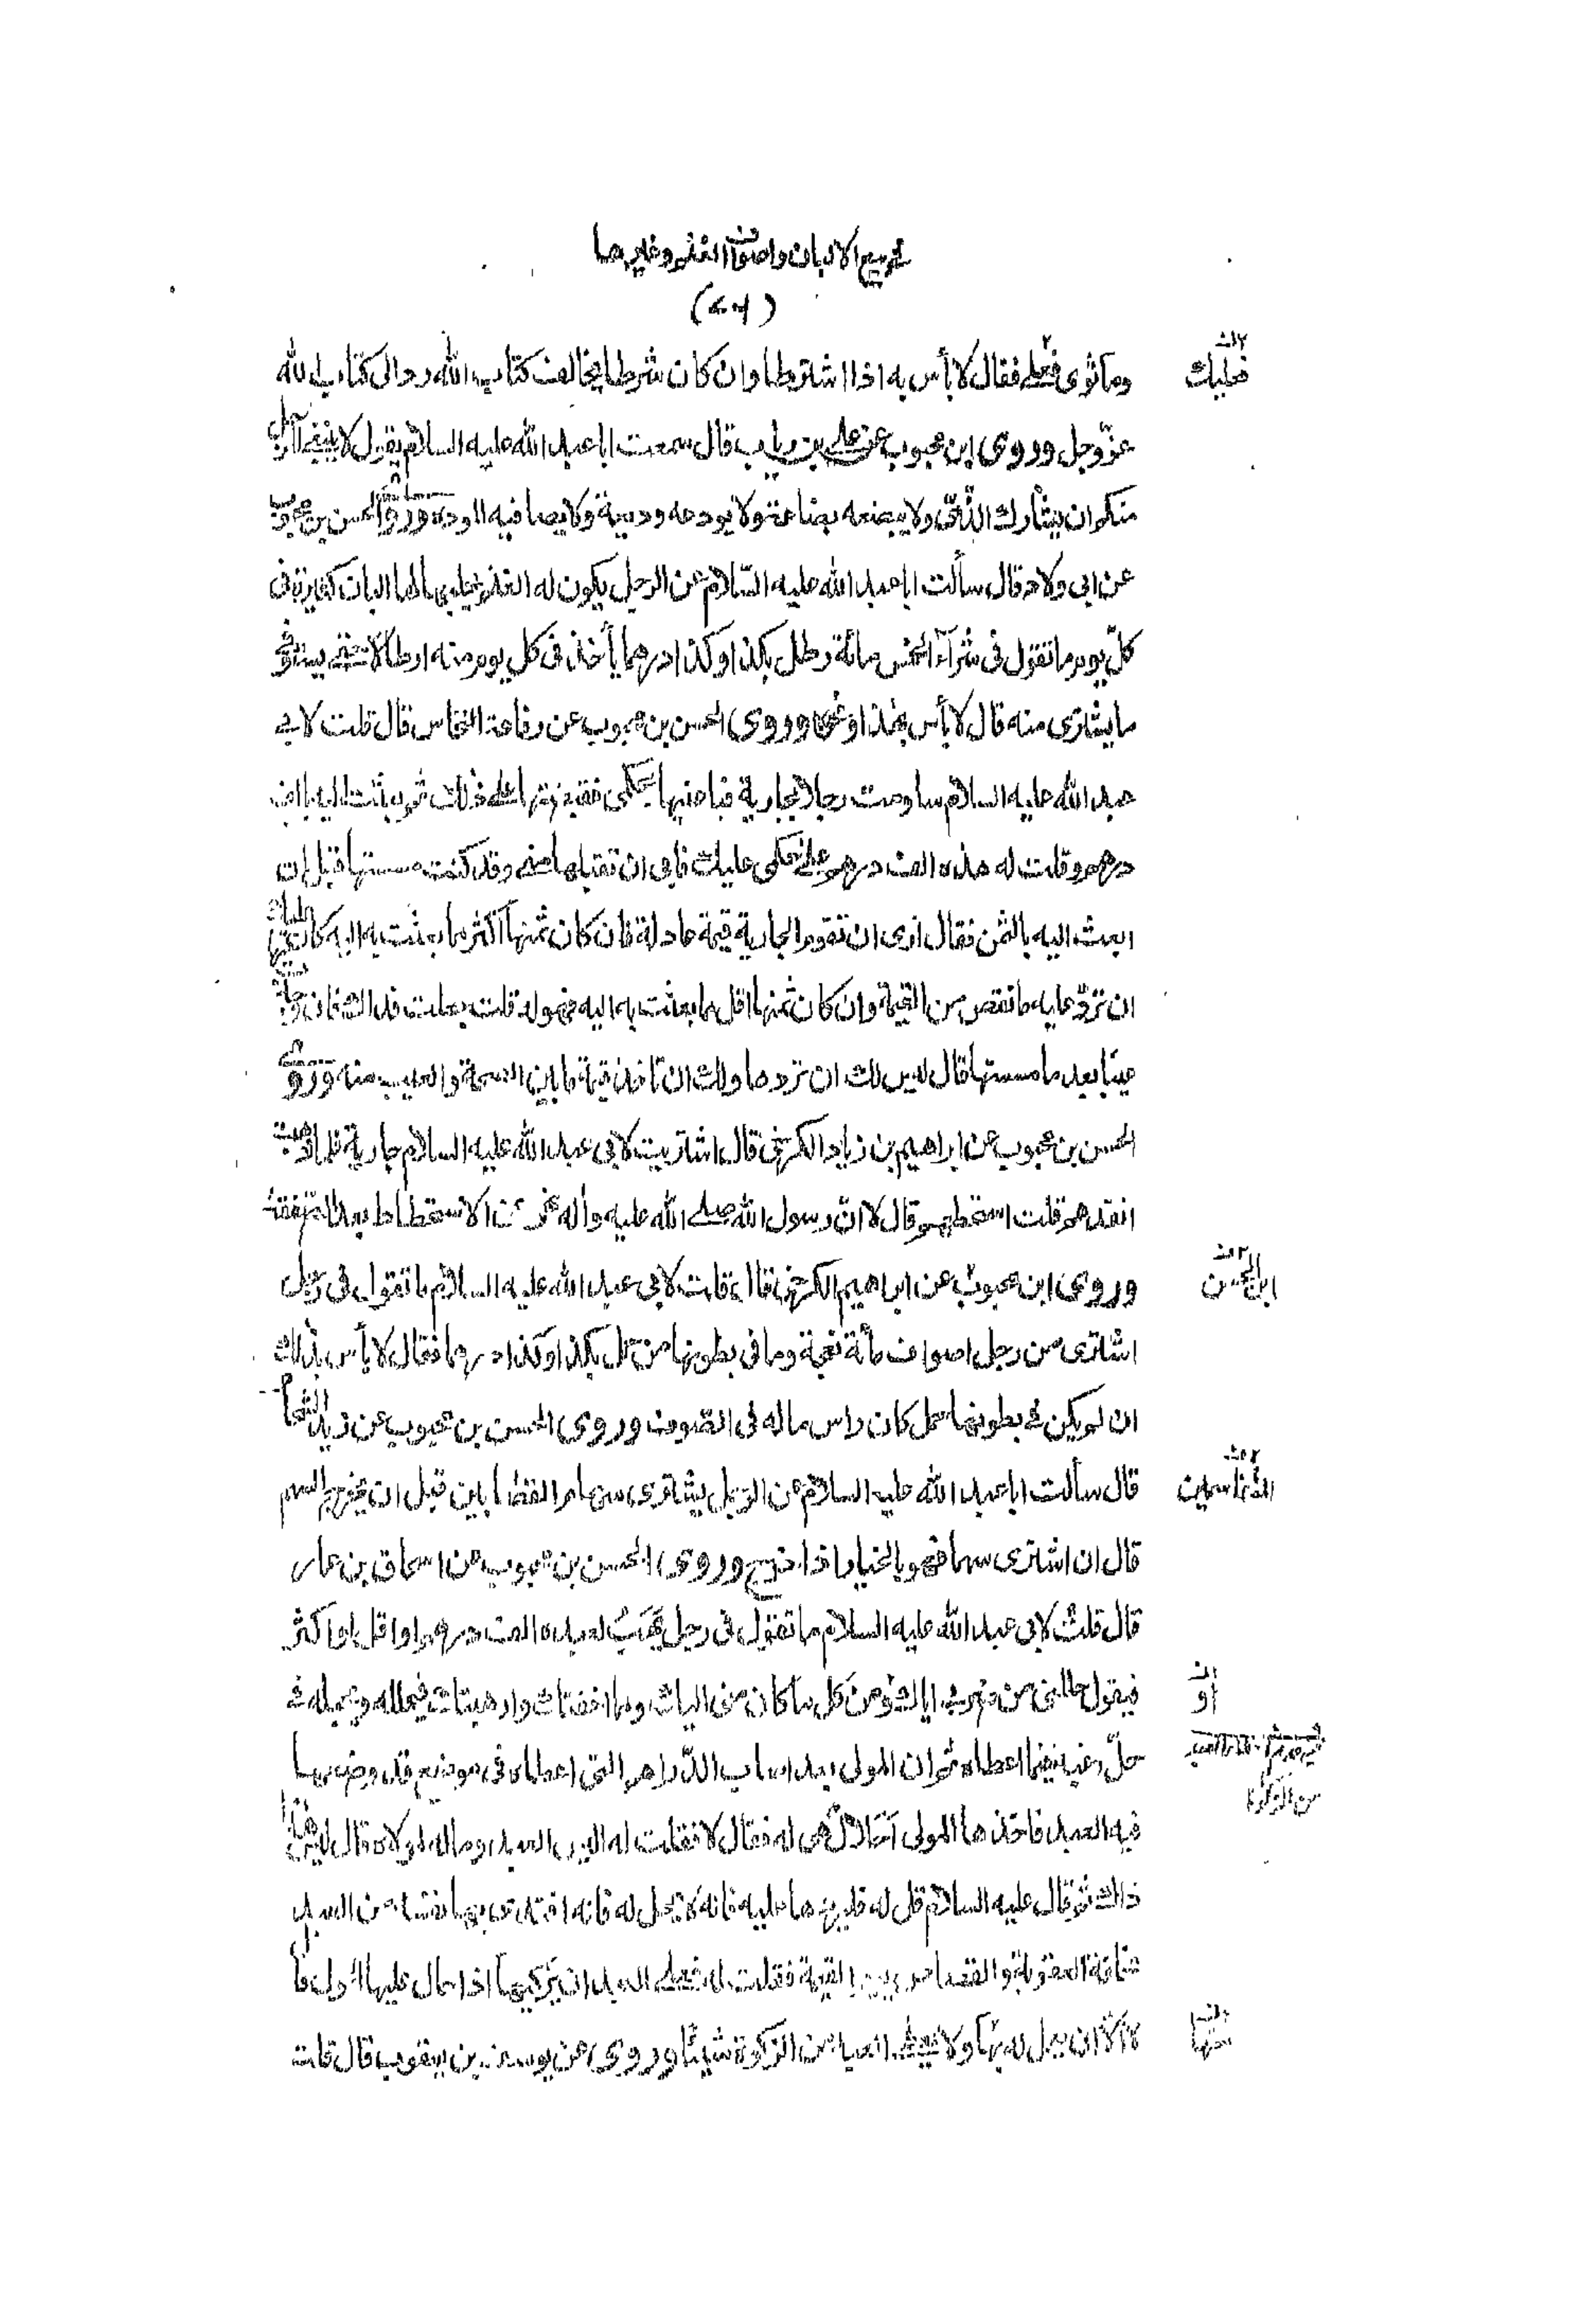 بيع الالبان واصواف الغنم وغيرها
وما توى فعليه فقال لا بأس به اذا اشترطا وان كان شرطا يخالف كتاب الله رد الى كتاب الله
فعليك
عزّوجل وروى ابن محبوب عن علي بن رياب قال سمعت ابا عبد الله عليه السلام يقول لا ينبغي للرجل
منكم ان يشارك الذّمّى ولا يبضعه بضاعة ولا يودعه وديعة ولا يصافيه المودة وروى الحسن بن محبوب
عن ابى ولاد قال سألت ابا عبد الله عليه السّلام عن الرجل يكون له الغنم يحلبها لها البان كثيرة فى
كلّ يوم ما تقول فى شرآء الخمس مائة رطل بكذا وكذا درهما يأخذ فى كل يوم منه ارطالا حتى يستوفى
ما يشترى منه قال لا بأس بهذا ونحوه وروى الحسن بن محبوب عن رفاعة النخاس قال قلت لابى
عبد الله عليه السلام ساومت رجلا بجارية فباعنيها بحكمى فقبضتها على ذلك ثم بعثت اليه بالف
درهم وقلت له هذه الف درهم على حكمى عليك فابى ان تقبلها منى وقد كنت مسستها قبل ان
ابعث اليه بالثمن فقال ارى ان تقوم الجارية قيمة عادلة فان كان ثمنها اكثر مما بعثت به اليه كان عليك
ان تردّ عليه ما نقص من القيمة وان كان ثمنها اقل مما بعثت به اليه فهو له قلت جعلت فداك فان وجدت
عيبا بعد ما مسستها قال ليس لك ان تردها ولك ان تأخذ قيمة ما بين الصحة والعيب منه وروى
الحسن بن محبوب عن ابراهيم بن زياد الكرخى قال اشتريت لابى عبد الله عليه السلام جارية فلما ذهبت
انقدهم قلت استحطهم قال لا انّ رسول الله صلى الله عليه وآله نهى عن الاستحطاط بعد الصفقة
وروى ابن محبوب عن ابراهيم الكرخى قال قلت لابى عبد الله عليه السلام ما تقول فى رجل
اشترى من رجل اصواف مأة نعجة وما فى بطونها من حمل بكذا وكذا درهما فقال لا بأس بذلك
ان لم يكن فى بطونها حمل كان راس ماله فى الصّوف وروى الحسن بن محبوب عن زيد الشحام
قال سألت ابا عبد الله عليه السلام عن الرّجل يشترى سهام القصّابين قبل ان يخرج السهم
قال ان اشترى سهما فهو بالخيار اذا خرج وروى الحسن بن محبوب عن اسحاق بن عمار
قال قلت لابى عبد الله عليه السلام ما تقول فى رجل يهب لعبده الف درهم او اقل او اكثر
فيقول حللنى من ضربى اياك ومن كل ما كان منى اليك وما اخفتك وارهبتك فيحلله ويجعله فى
او
حلّ رغبة فيما اعطاه ثم ان المولى بعد اصاب الدّراهم التى اعطاه فى موضع قد وضعها
من الزكوة
فيه العبد فاخذها المولى أحلال هى له فقال لا فقلت له اليس العبد وماله لمولاه قال ليس هذا
ذاك ثم قال عليه السلام قل له فليردها عليه فانه لا يحل له فانه افتدى بها نفسه من العبد
مخافة العقوبة والقصاص يوم القيمة فقلت له فعلى العبد ان يزكيها اذا حال عليها الحول قا
ل لا الا ان يعمل له بها ولا يعطى العبد من الزكوة شيئا وروى عن يوسف بن يعقوب قال قلت